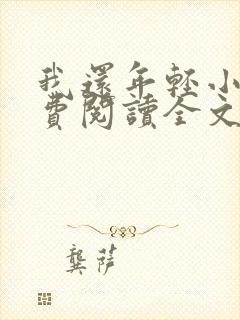 我還年輕小
費閱讀全文
龔萍